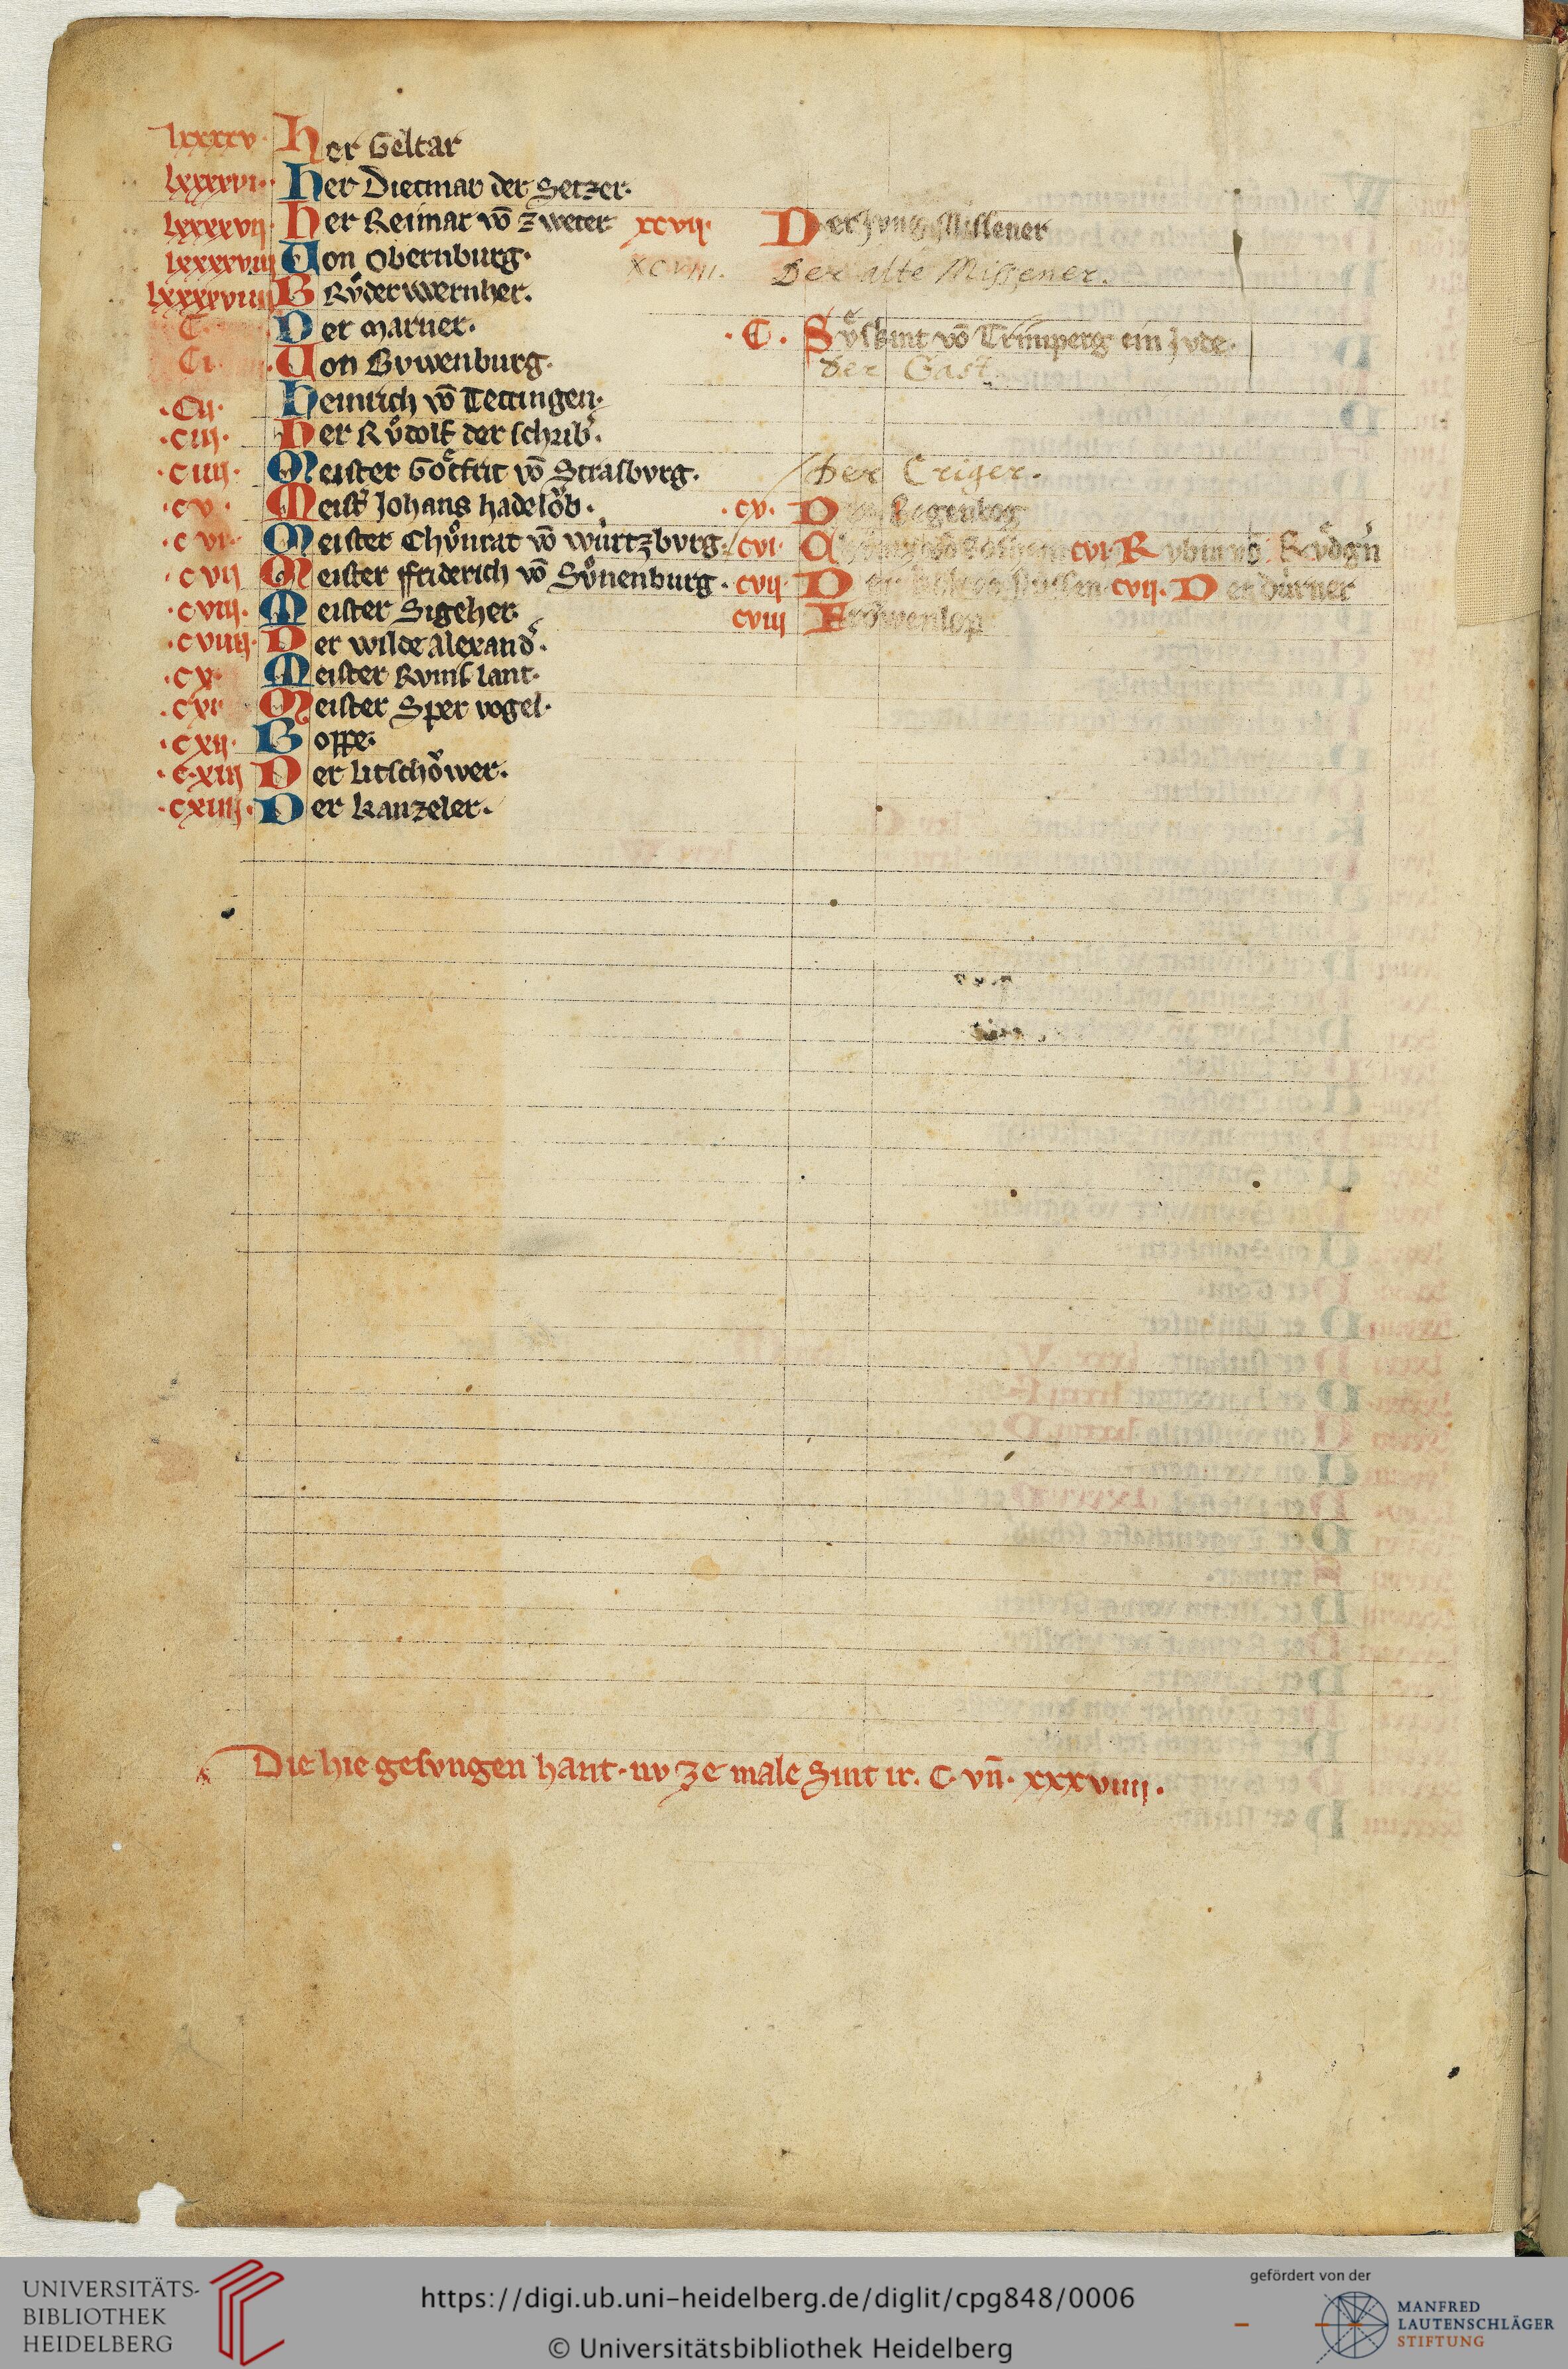 lxxxxv· Her Geltar
lxxxxvi· Her Dietmar der Setzer·
lxxxxvii· Her Reimar vō Zweter· xcvii· Der Jvng Missener
lxxxxviii Von Obernburg· XCVIII. Der alte Missener.
lxxxxviiii Brůder Wernher.
C· Der Marner· ·C· Sůskint vō Trimperg ein Jvde·
Ci· Von Bvwenburg· der Gast
·Cii· Heinrich vō Tettingen·
·ciii· Her Růdolf der schrib̄·
·ciiii· Meister Gotfrit vō Strasbvrg· Der Criger.
·cv· Meist̄ Johans Hadeloͮb· ·cv· D Regenbog
·cvi· Meister Chůnrat vō Würtzbvrg· cvi· cvi· Rvbin vō Rvdgˀn
·cvii Meister Friderich vō Sůnenburg· cvii· D cvii· Der Dürner
·cviii· Meister Sigeher· cviii Froͮwenlop
·cviiii· Der wilde Alexandˀ·
·cx· Meister Rvmslant·
·cxi Meister Spervogel·
·cxii· Boppe·
·cxiii Der Litschoͮwer·
·cxiiii· Der Kanzeler·
Die hie gesvngen hant· nv ze male Sint ir· C· vn̄· xxxviiii·
UNIVERSITÄTS-
BIBLIOTHEK
HEIDELBERG
https://digi.ub.uni-heidelberg.de/diglit/cpg848/0006
© Universitätsbibliothek Heidelberg
gefördert von der
MANFRED
LAUTENSCHLÄGER
STIFTUNG